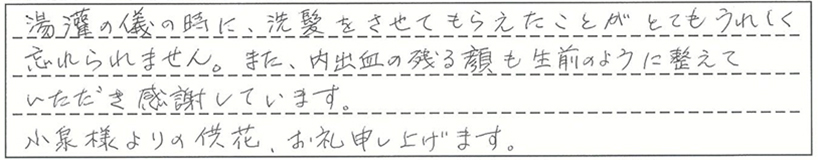 湯灌の儀の時に、洗髪をさせてもらえたことがとてもうれしく
忘れられません。また、内出血の残る顔も生前のように整えて
いただき感謝しています。
小泉様よりの供花、お礼申し上げます。